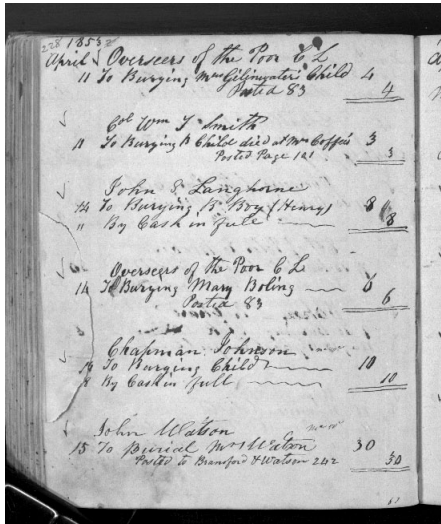 228 1853
April Overseers of the Poor C L
11 To Burying Mrs Gilinwater's Child 4
Posted 83 4
Col Wm T. Smith
11 To Burying B Child died at Mrs Coffee's 3
Posted Page 121 3
John S Langhorne
14 To Burying B. Boy (Henry) 8
" By Cash in full 8
Overseers of the Poor C L
14 To Burying Mary Boling 6
Posted 83 6
Chapman Johnson
To Burying Child 10
By Cash in full 10
John Watson
15 To Burial Mrs Watson 30
Posted to Bransford & Watson 242 30